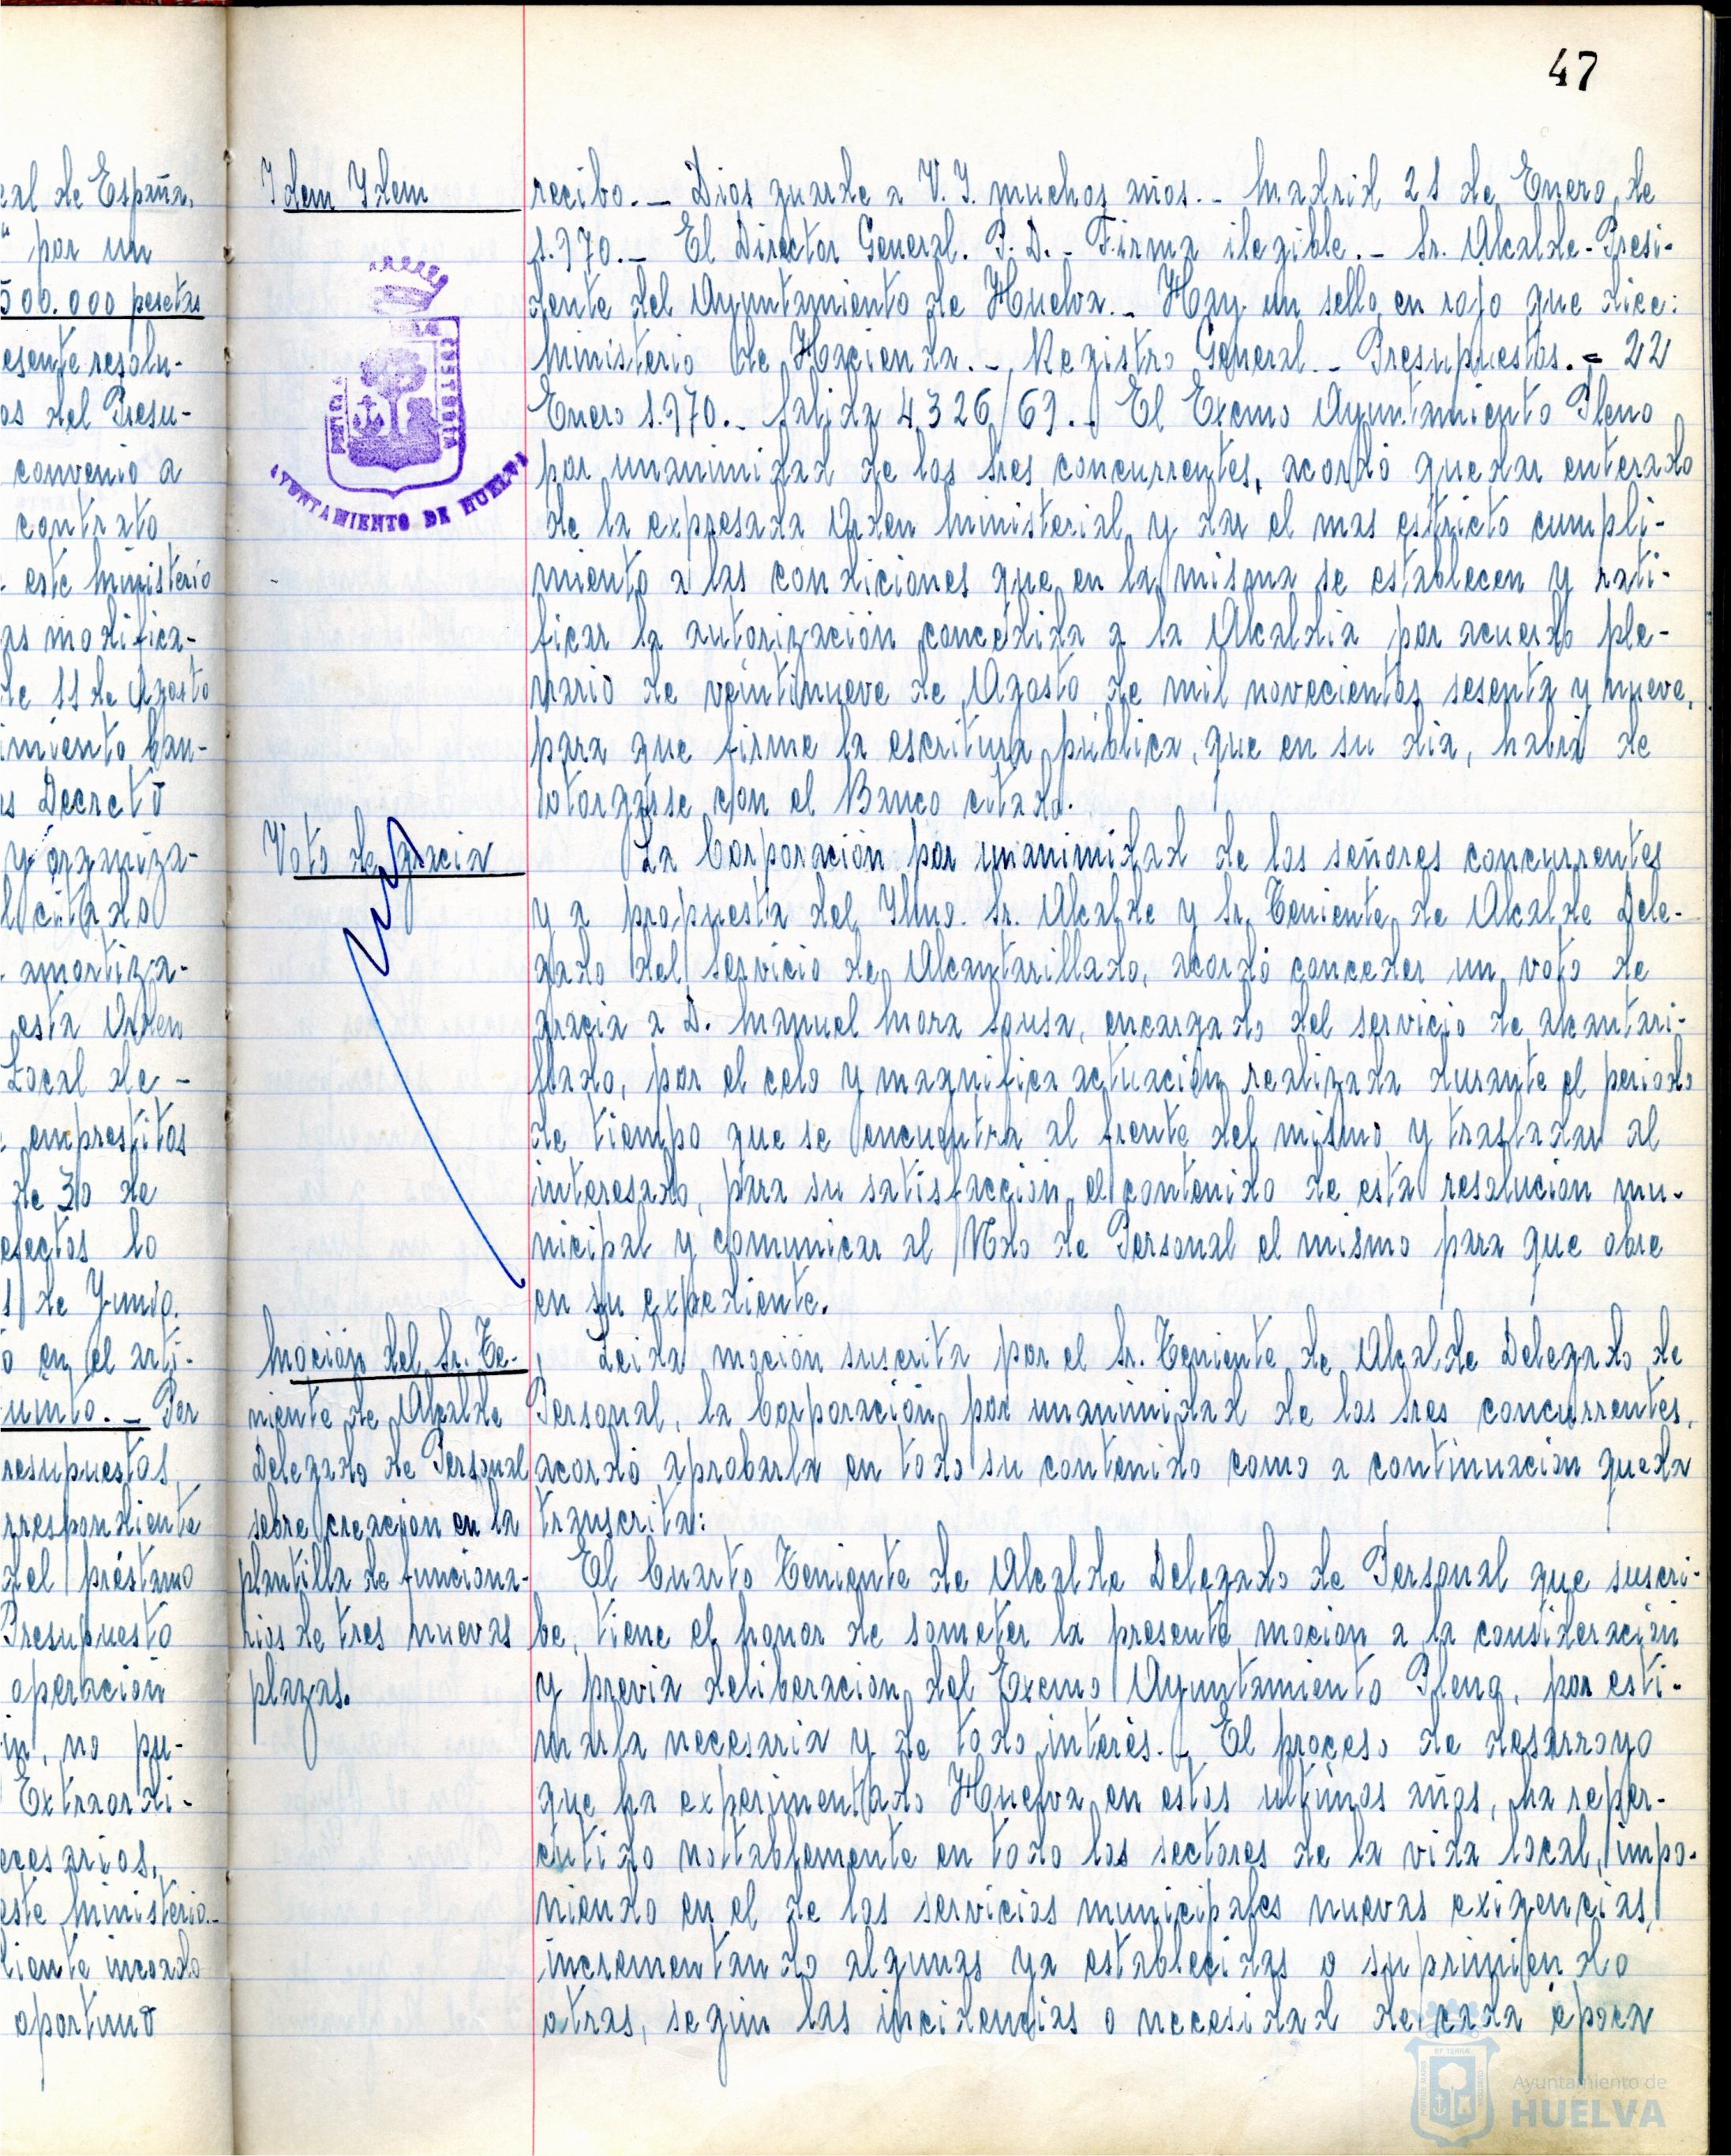 47
cal de España,
" por un
500.000 pesetas
esente resolu-
os del Presu-
convenio a
contrato
este Ministerio
as modifica-
de 11 de Agosto
imiento, ban-
Decreto
y organiza-
l citado
amortiza-
esta Orden
Local de-
emprestitos
de 30 de
efectos lo
1 de Junio.
o en el artí-
unto. - Per
resupuestos
rrespondiente
del préstamo
Presupuesto
operación
in, no pu-
Extraordi-
ecesarios,
este Ministerio.-
diente incoado
oportuno
Idem Idem
AYUNTAMIENTO DE HUELVA
Voto de gracia
Moción del Sr. Te-
niente de Alcalde
Delegado de Personal
sobre creación en la
plantilla de funciona-
rios de tres nuevas
plazas.
recibo.- Dios guarde a V.I. muchos años.- Madrid 21 de Enero de
1.970.- El Director General. P.D.- Firma ilegible.- Sr. Alcalde-Presi-
dente del Ayuntamiento de Huelva.- Hay un sello en rojo que dice:
Ministerio de Hacienda.- Registro General.- Presupuestos.= 22
Enero 1.970.- Salida 4326/69.- El Excmo Ayuntamiento Pleno
por unanimidad de los Sres concurrentes, acordó quedar enterado
de la expresada Orden Ministerial y dar el mas estricto cumpli-
miento a las condiciones que en la misma se establecen y rati-
ficar la autorización concedida a la Alcaldia por acuerdo ple-
nario de veintinueve de Agosto de mil novecientos sesenta y nueve,
para que firme la escritura pública, que en su dia, habrá de
otorgarse con el Banco citado.
La Corporación por unanimidad de los señores concurrentes
y a propuesta del Ylmo. Sr. Alcalde y Sr. Teniente de Alcalde Dele-
gado del Servicio de Alcantarillado, acordó conceder un voto de
gracia a D. Manuel Mora Sousa, encargado del servicio de alcantari-
llado, por el celo y magnifica actuación realizada durante el periodo
de tiempo que se encuentra al frente del mismo y trasladar al
interesado, para su satisfacción, el contenido de esta resolución mu-
nicipal y comunicar al Ndo de Personal el mismo para que obre
en su expediente.
Leida moción suscrita por el Sr. Teniente de Alcalde Delegado de
Personal, la Corporación, por unanimidad de los Sres concurrentes,
acordó aprobarla en todo su contenido como a continuación queda
transcrita:
El Cuarto Teniente de Alcalde Delegado de Personal que suscri-
be, tiene el honor de someter la presente moción a la consideración
y previa deliberación del Excmo Ayuntamiento Pleno, por esti-
marla necesaria y de todo interés.- El proceso de desarroyo
que ha experimentado Huelva en estos ultimos años, ha reper-
cutido nottablemente en todo los sectores de la vida local, impo-
niendo en el de los servicios municipales nuevas exigencias,
incrementando algunas ya establecidas o suprimiendo
otras, según las incidencias o necesidad de cada época
Ayuntamiento de
HUELVA